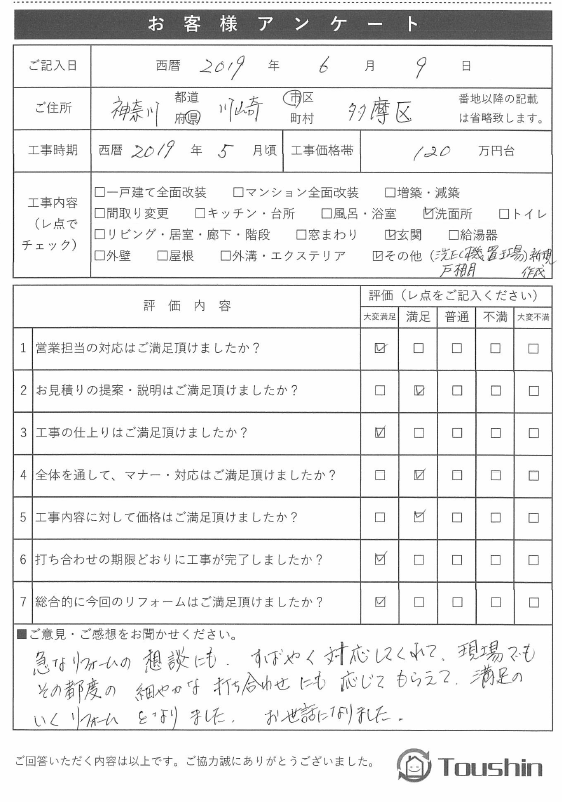 お客様アンケート
ご記入日 西暦 2019 年 6 月 9 日
ご住所 神奈川 都道府県 川崎 市区町村 多摩区 番地以降の記載は省略致します。
工事時期 西暦 2019 年 5 月頃 工事価格帯 120 万円台
工事内容（レ点でチェック）
□一戸建て全面改装 □マンション全面改装 □増築・減築
□間取り変更 □キッチン・台所 □風呂・浴室 ☑洗面所 □トイレ
□リビング・居室・廊下・階段 □窓まわり ☑玄関 □給湯器
□外壁 □屋根 □外溝・エクステリア ☑その他（洗 機置場）新規
戸棚 作成
評価内容 評価（レ点をご記入ください）
大変満足 満足 普通 不満 大変不満
1 営業担当の対応はご満足頂けましたか？ ☑ □ □ □ □
2 お見積りの提案・説明はご満足頂けましたか？ □ ☑ □ □ □
3 工事の仕上りはご満足頂けましたか？ ☑ □ □ □ □
4 全体を通して、マナー・対応はご満足頂けましたか？ □ ☑ □ □ □
5 工事内容に対して価格はご満足頂けましたか？ □ ☑ □ □ □
6 打ち合わせの期限どおりに工事が完了しましたか？ ☑ □ □ □ □
7 総合的に今回のリフォームはご満足頂けましたか？ ☑ □ □ □ □
■ご意見・ご感想をお聞かせください。
急なリフォームの想談にも、すばやく対応してくれて、現場でも
その都度の細やかな打ち合わせにも応じてもらえて、満足の
いくリフォームをなりました。お世話になりました。
ご回答いただく内容は以上です。ご協力誠にありがとうございました。
Toushin